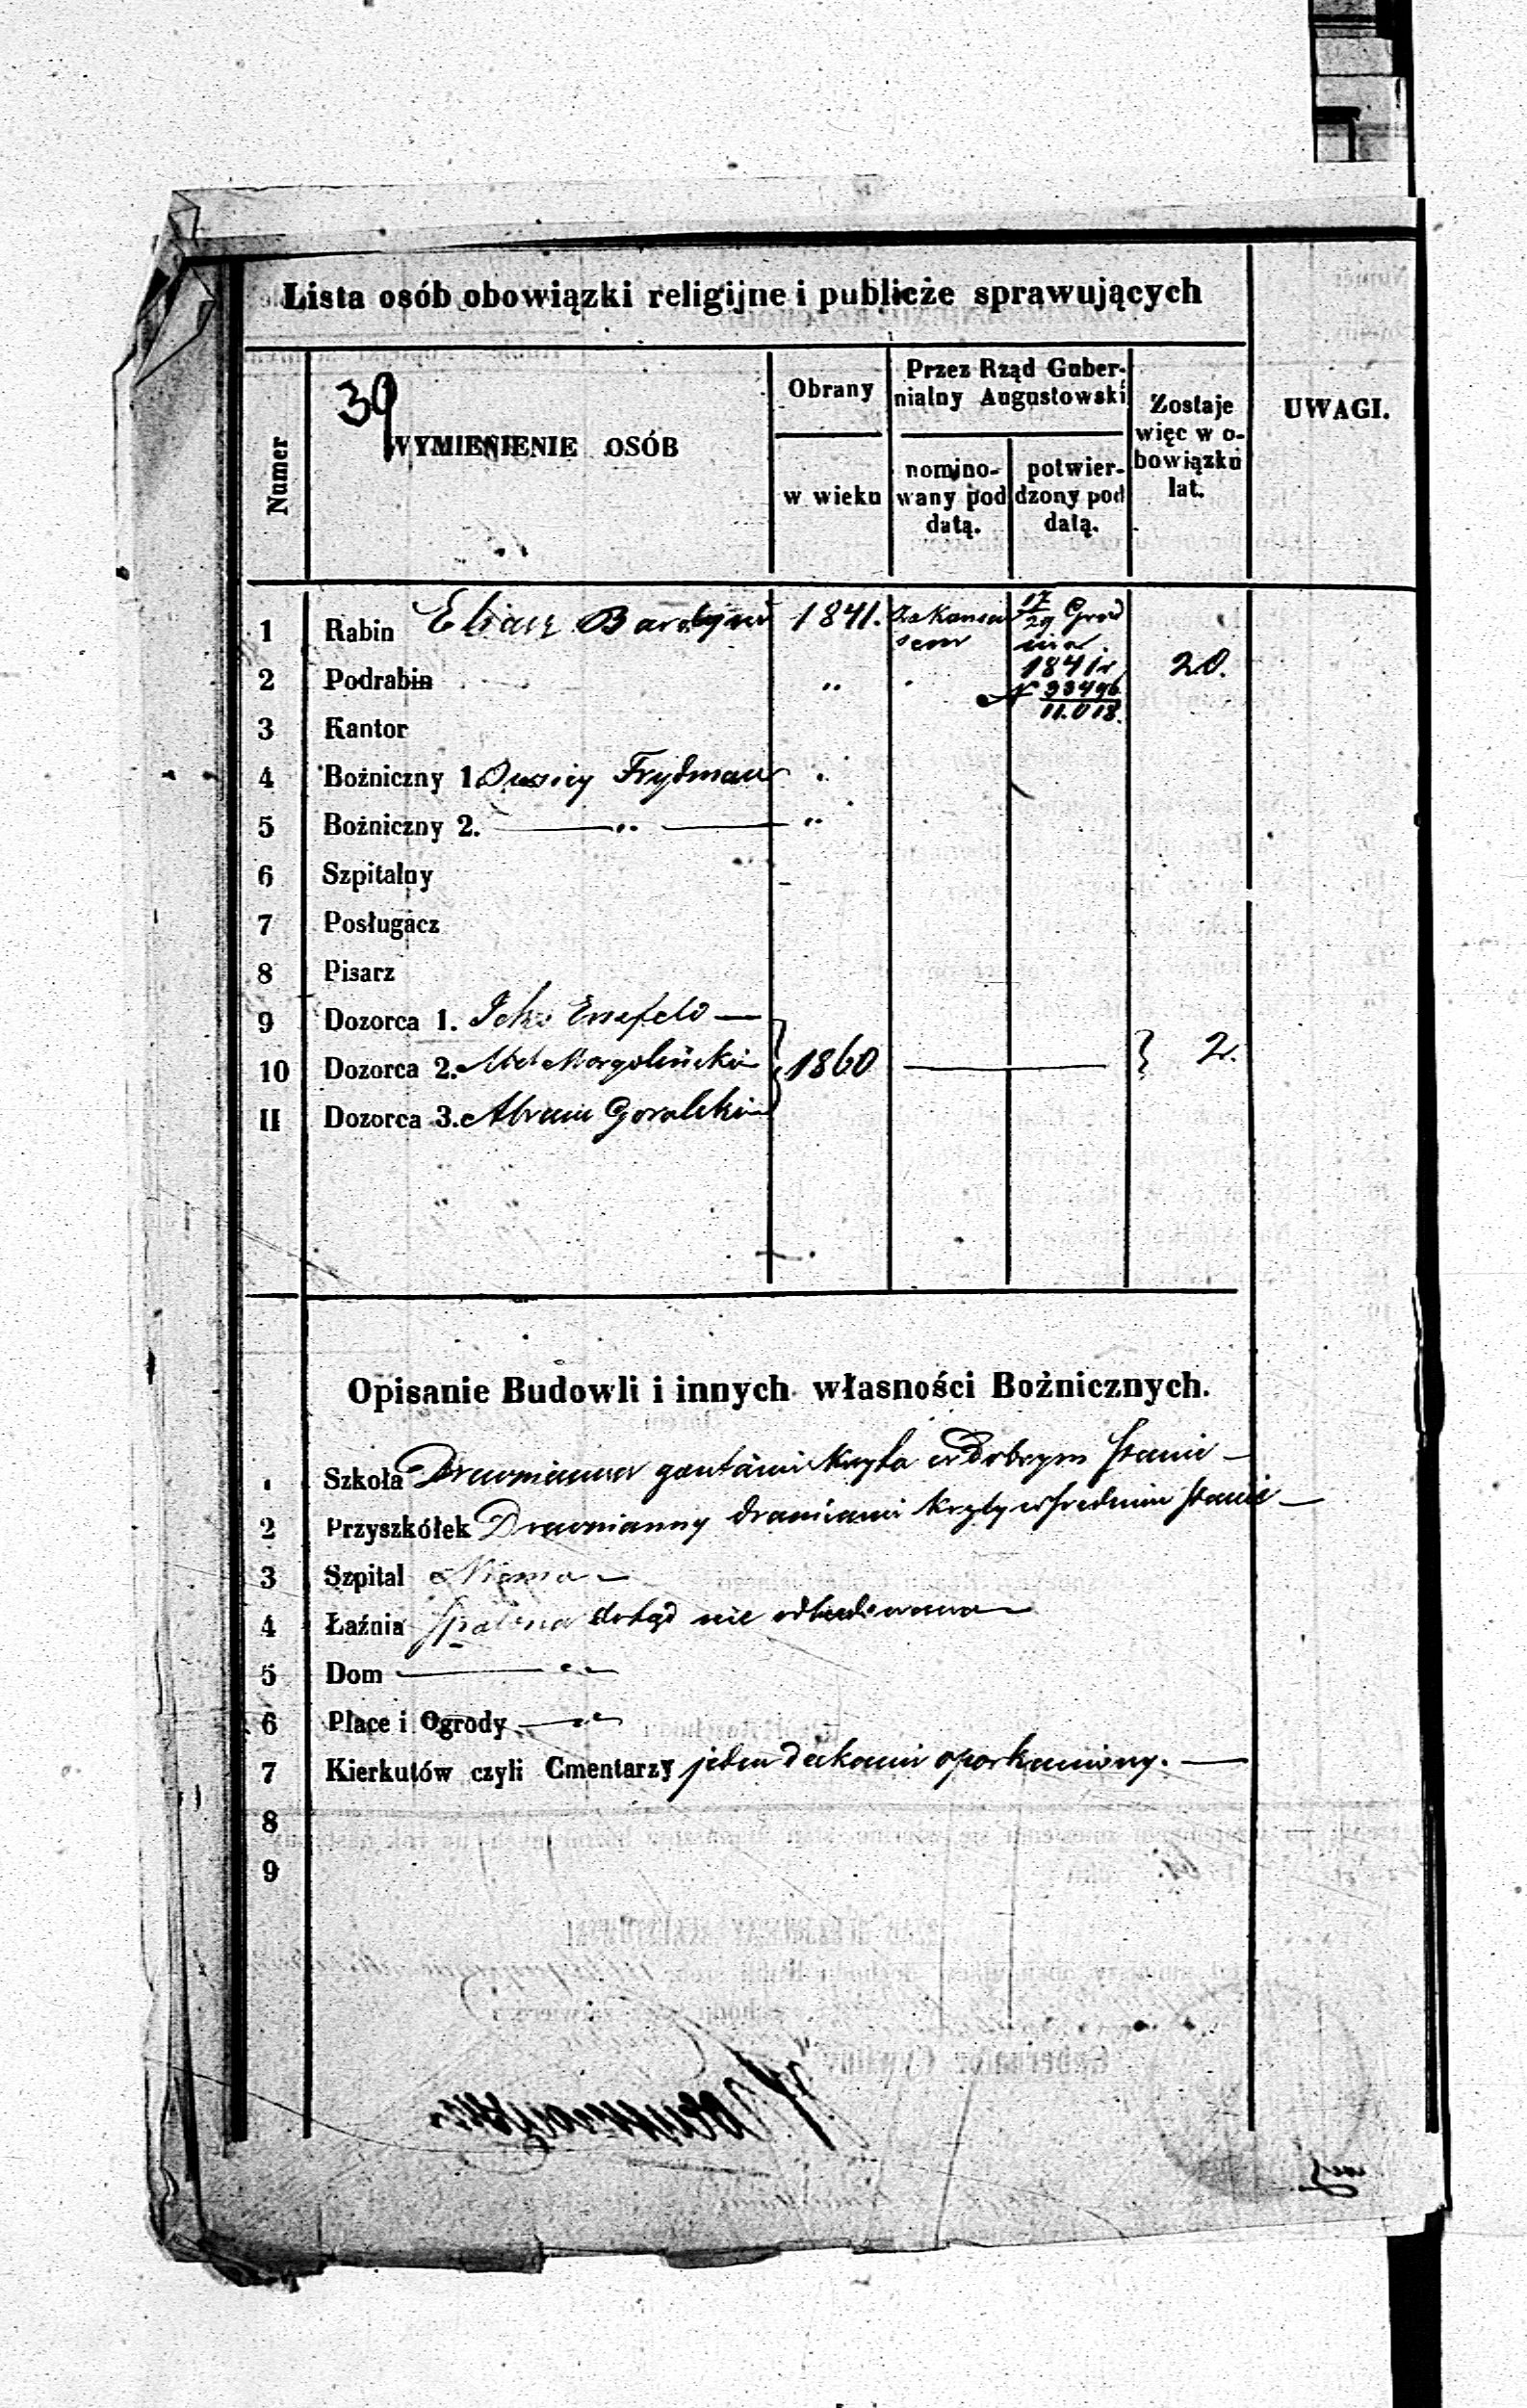 Lista osób obowiązki religijne i publicże sprawujących
Numer
39
WYMIENIENIE OSÓB
Obrany
w wieku
Przez Rząd Guber-
nialny Augustowski
nomino-
wany pod
datą.
potwier-
dzony pod
datą.
Zostaje
więc w o-
bowiązku
lat.
UWAGI.
1 Rabin Eliasz 1841. 17/29 Grud
nia
1841 r
2 Podrabin 20.
N 93496
11.018.
3 Kantor
4 Bożniczny 1. Frydman
5 Bożniczny 2. — " —
6 Szpitalny
7 Posługacz
8 Pisarz
9 Dozorca 1. Icko —
10 Dozorca 2. Margoliński 1860 — 2.
11 Dozorca 3. Abram Goralski
Opisanie Budowli i innych własności Bożnicznych.
1 Szkoła Drewniana gontami kryta w dobrym stanie —
2 Przyszkółek Drewnianny dranicami kryty w srednim stanie —
3 Szpital Niema —
4 Łaźnia spalona dotąd nie odbudowana —
5 Dom — "
6 Place i Ogrody — "
7 Kierkutów czyli Cmentarzy jeden oparkaniony. —
8
9